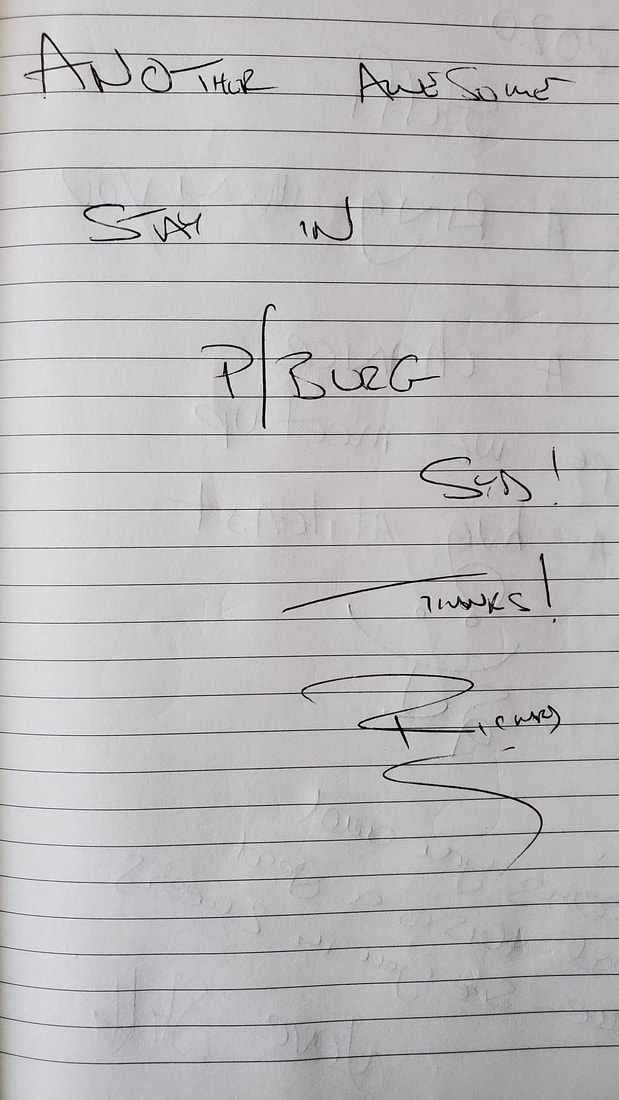 ANOTHER AWESOME
STAY IN
P/BURG
SYD!
THANKS!
RICHARD